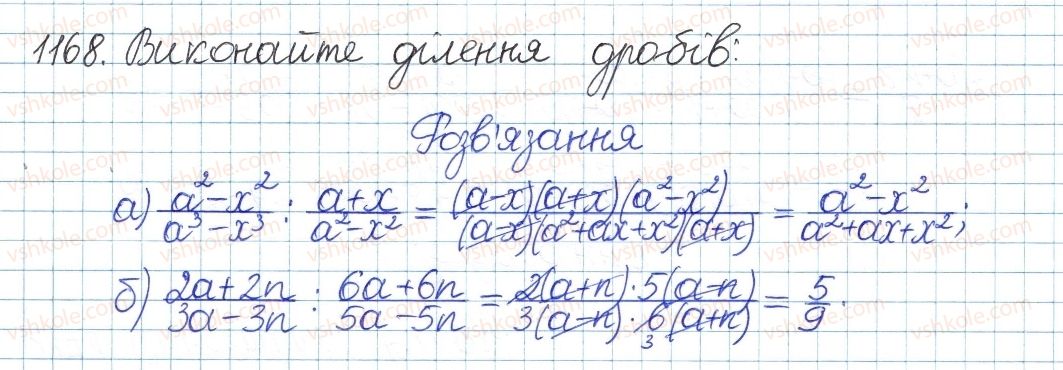 1168. Виконайте ділення дробів:
Розв'язання
а) (a² - x²)/(a³ - x³) : (a + x)/(a² - x²) = ((a - x)(a + x)(a² - x²))/((a - x)(a² + ax + x²)(a + x)) = (a² - x²)/(a² + ax + x²);
б) (2a + 2n)/(3a - 3n) : (6a + 6n)/(5a - 5n) = (2(a + n) · 5(a - n))/(3(a - n) · 6(a + n)) = 5/9.
3
vshkole.com